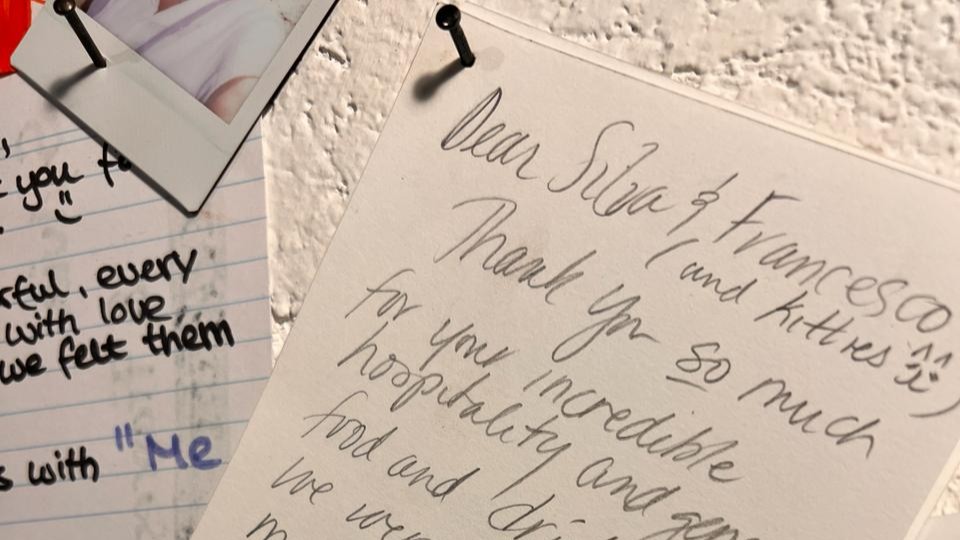 you
, every
with love
we felt them
with "Me
Dear Silva & Francesco
(and kitties )
Thank you so much
for your incredible
hospitality and
food and
We